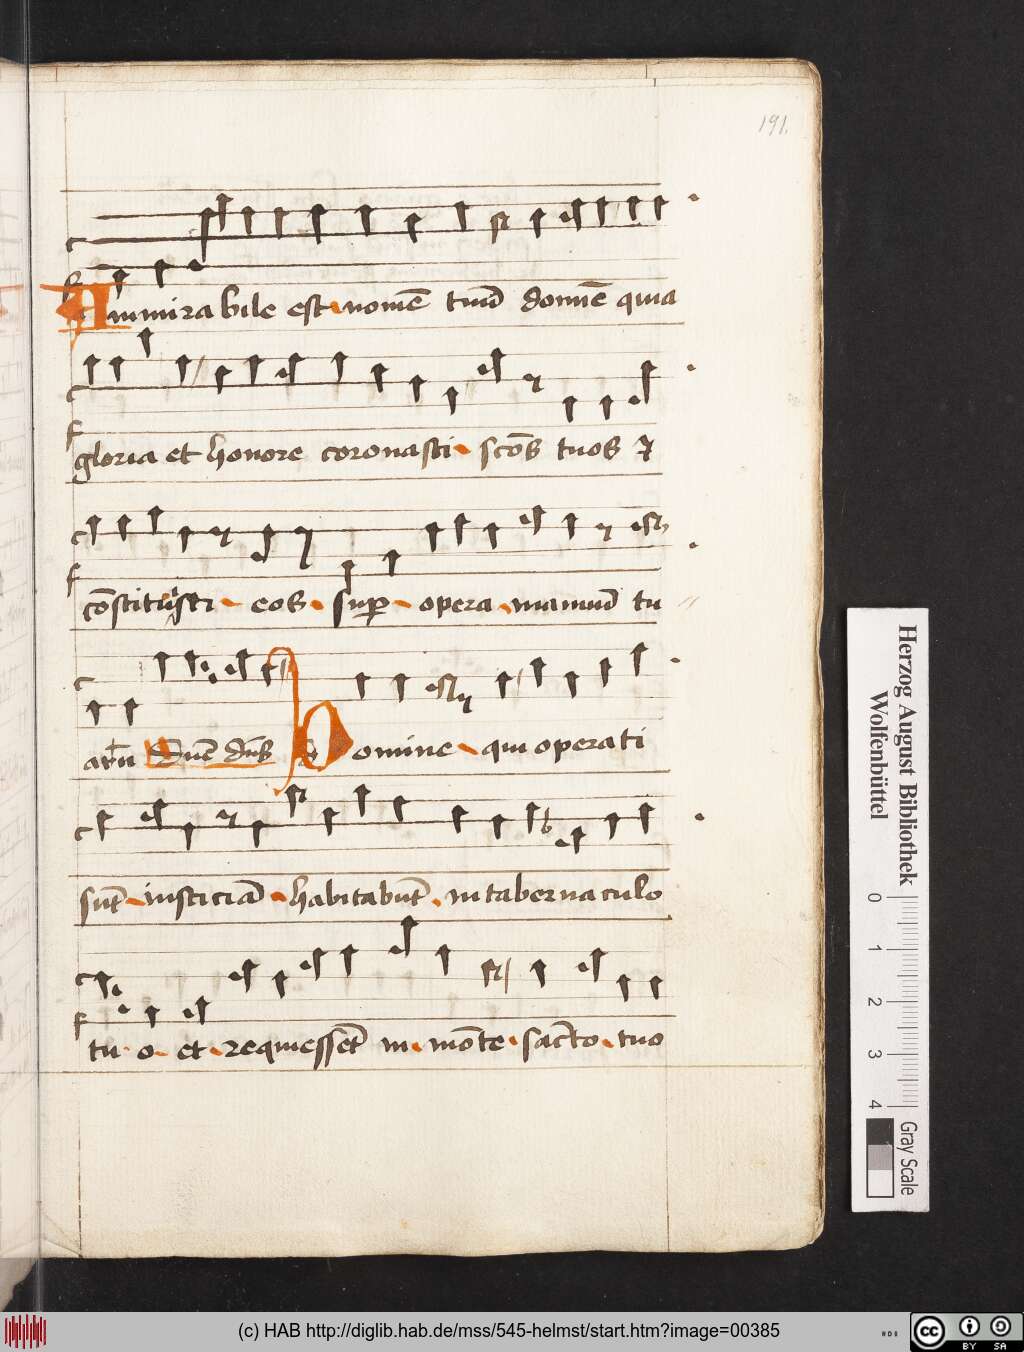 191.
Ammirabile est nomē tuū domīe quia
gloria et honore coronasti scōs tuos ⁊
cōstituisti eos sup opera manuū tu
arū Dn̄e dn̄s Domine qui operati
sūt iusticiā habitabūt in tabernaculo
tuo et requiessēt in mōte sācto tuo
Herzog August Bibliothek
Wolfenbüttel
0 1 2 3 4
Gray Scale
(c) HAB http://diglib.hab.de/mss/545-helmst/start.htm?image=00385
cc BY SA